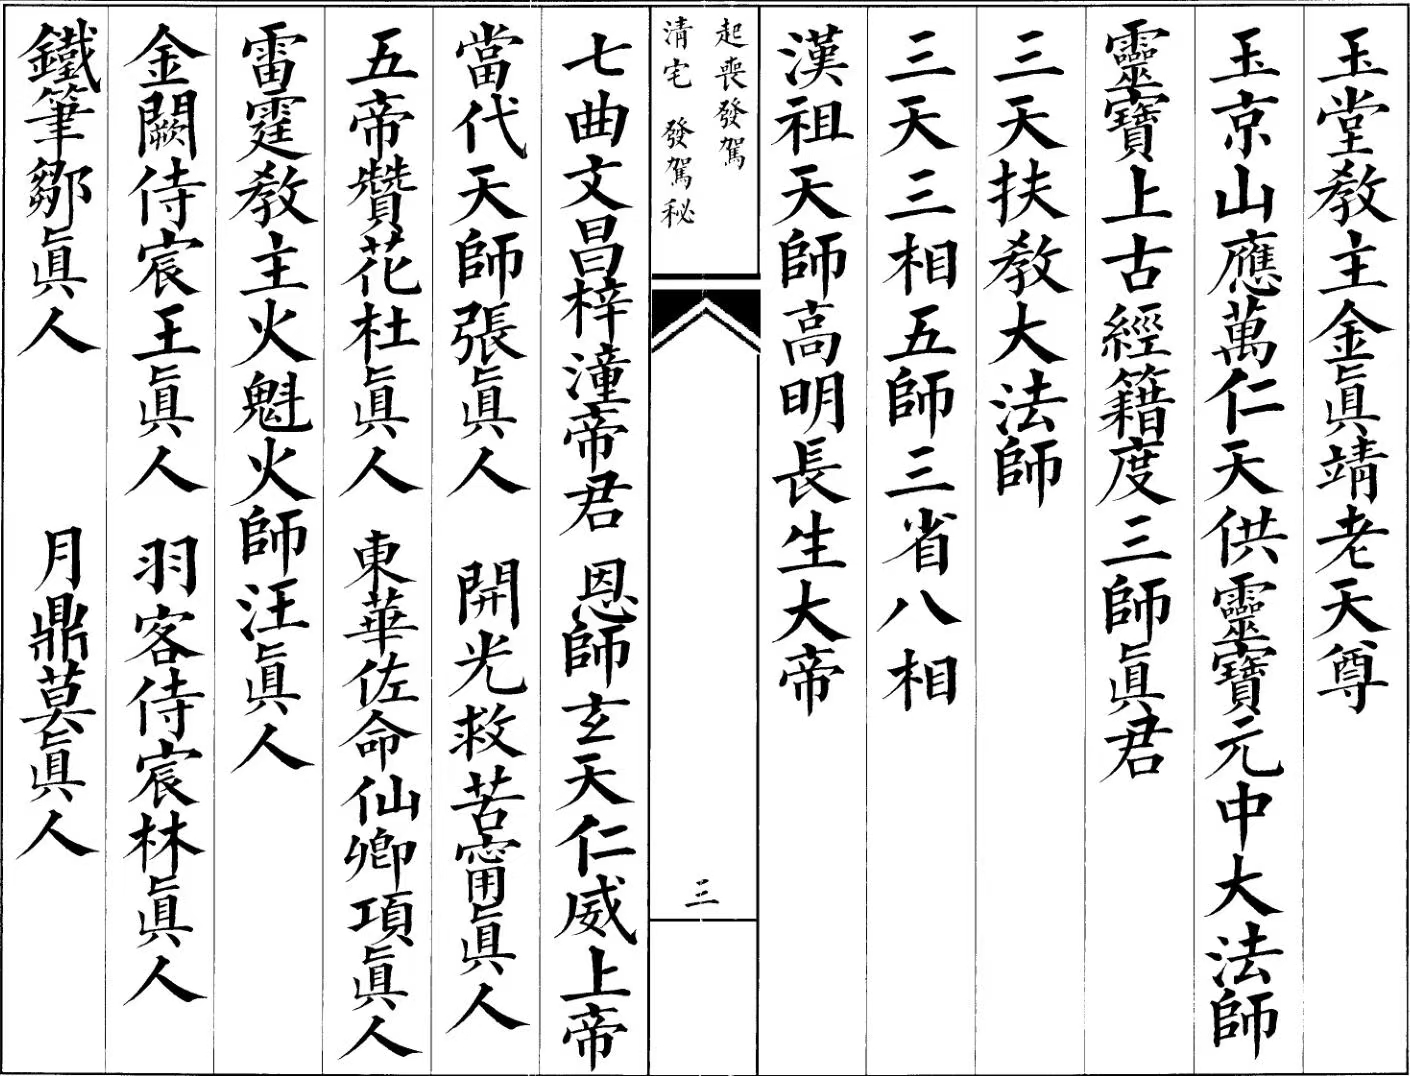 玉堂敎主金眞靖老天尊
玉京山應萬仁天供靈寶元中大法師
靈寶上古經籍度三師眞君
三天扶敎大法師
三天三相五師三省八相
漢祖天師高明長生大帝
起喪發駕
清宅 發駕秘
三
七曲文昌梓潼帝君 恩師玄天仁威上帝
當代天師張眞人 開光救苦甯眞人
五帝贊花杜眞人 東華佐命仙卿項眞人
雷霆敎主火魁火師汪眞人
金闕侍宸王眞人 羽客侍宸林眞人
鐵筆鄒眞人 月鼎莫眞人